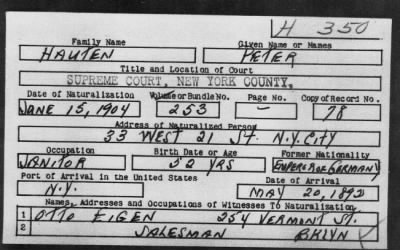 H 350
Family Name Given Name or Names
HAUTEN PETER
Title and Location of Court
SUPREME COURT, NEW YORK COUNTY.
Date of Naturalization Volume or Bundle No. Page No. Copy of Record No.
JUNE 15, 1904 253 — 78
Address of Naturalized Person
33 WEST 21 ST. N.Y. CITY
Occupation Birth Date or Age Former Nationality
JANITOR 52 YRS EMPEROR OF GERMANY
Port of Arrival in the United States Date of Arrival
N.Y. MAY 20, 1892
Names, Addresses and Occupations of Witnesses To Naturalization
1 OTTO EIGEN 254 VERMONT ST.
2 SALESMAN BKLYN